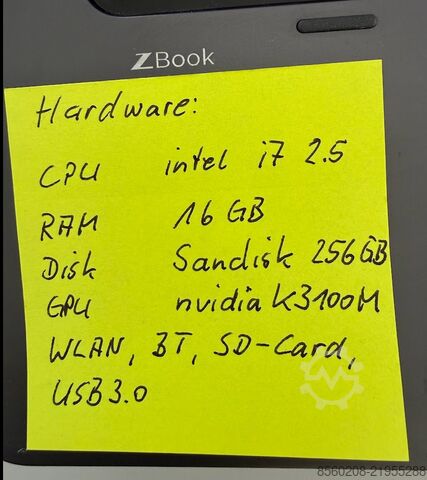 ZBook
Hardware:
CPU intel i7 2.5
RAM 16 GB
Disk Sandisk 256GB
GPU nvidia K3100M
WLAN, BT, SD-Card,
USB3.0
8560208-21955288